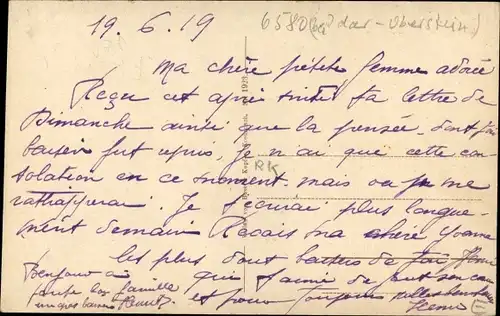 19.6.19
6580 Idar-Oberstein
Ma chère petite femme adorée
Reçu cet après ta lettre de
Dimanche ainsi que la pensée dont ton
baiser fut repris, je n'ai que cette con
solation en ce moment mais ou je me
rattraperai. Je t'écrirai plus longue-
ment demain Recois ma chère Yvonne
les plus doux baisers de ton Henri
qui t'aime de tout son cœur
et pour toujours
Henri
Bonjour à
toute la famille
un gros baiser
RK